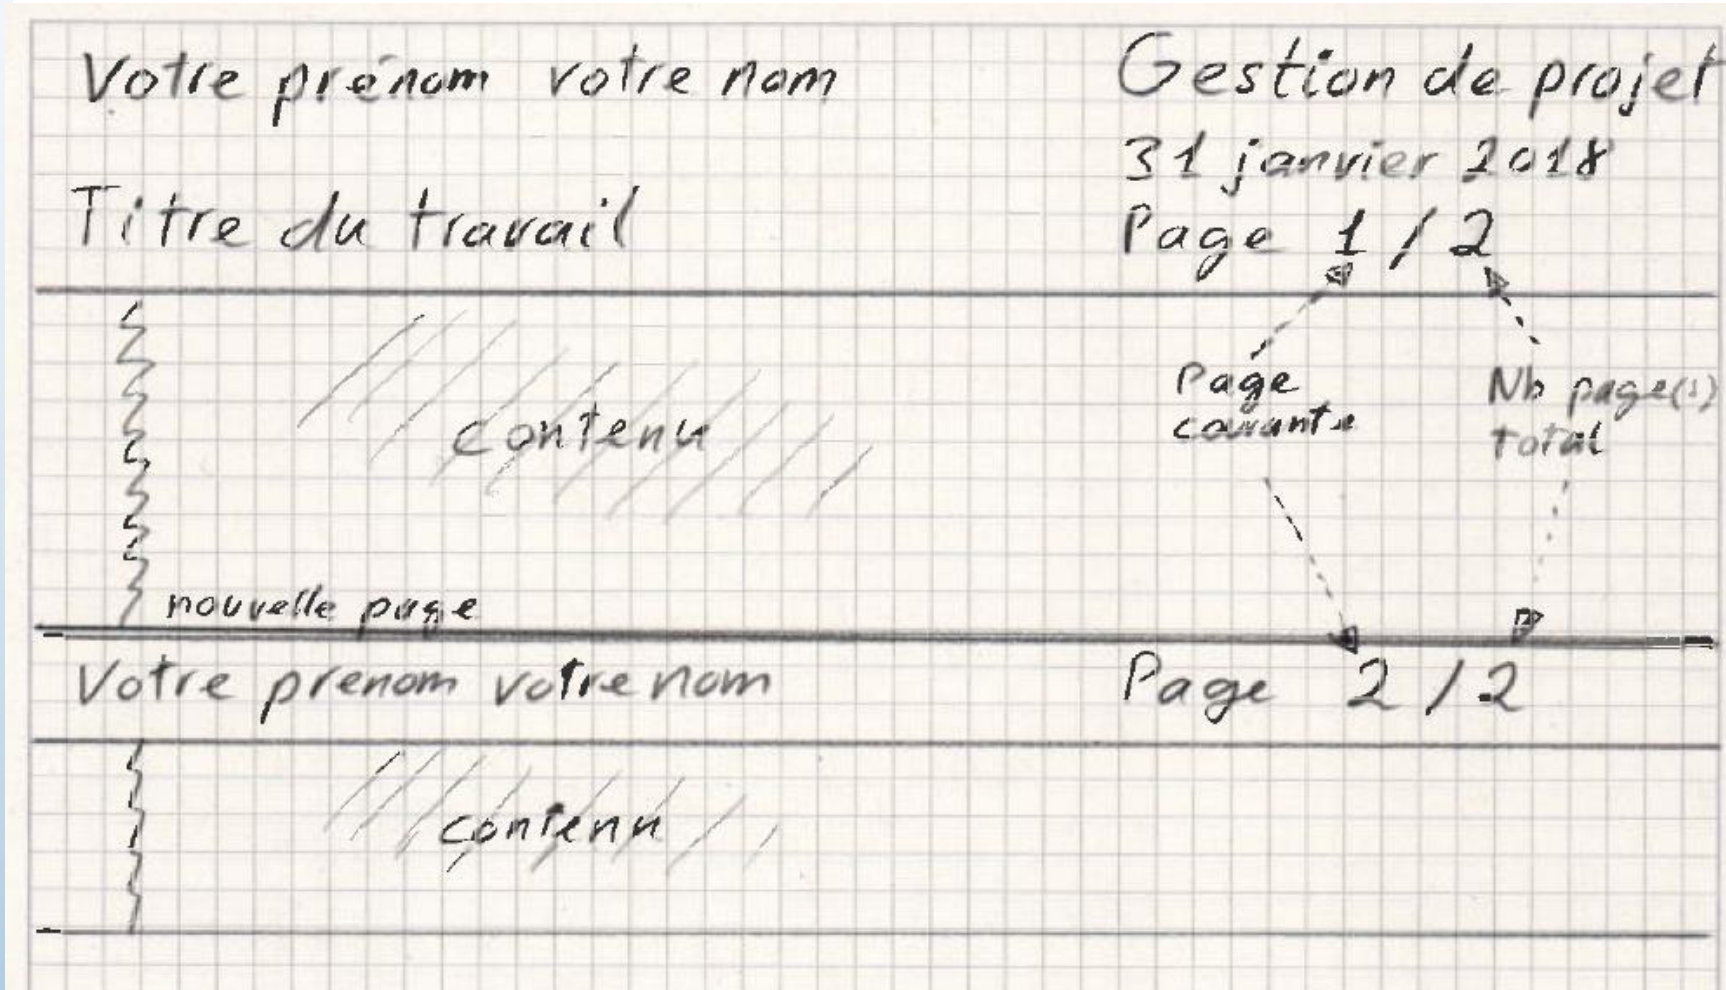 Votre prénom votre nom
Gestion de projet
31 janvier 2018
Titre du travail
Page 1 / 2
contenu
Page
courante
Nb page(s)
total
nouvelle page
Votre prenom votre nom
Page 2 / 2
contenu